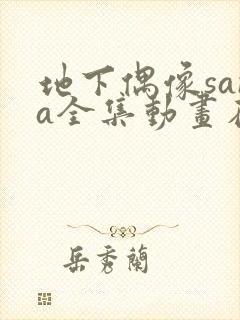 地下偶像sa
a全集動畫
岳秀蘭